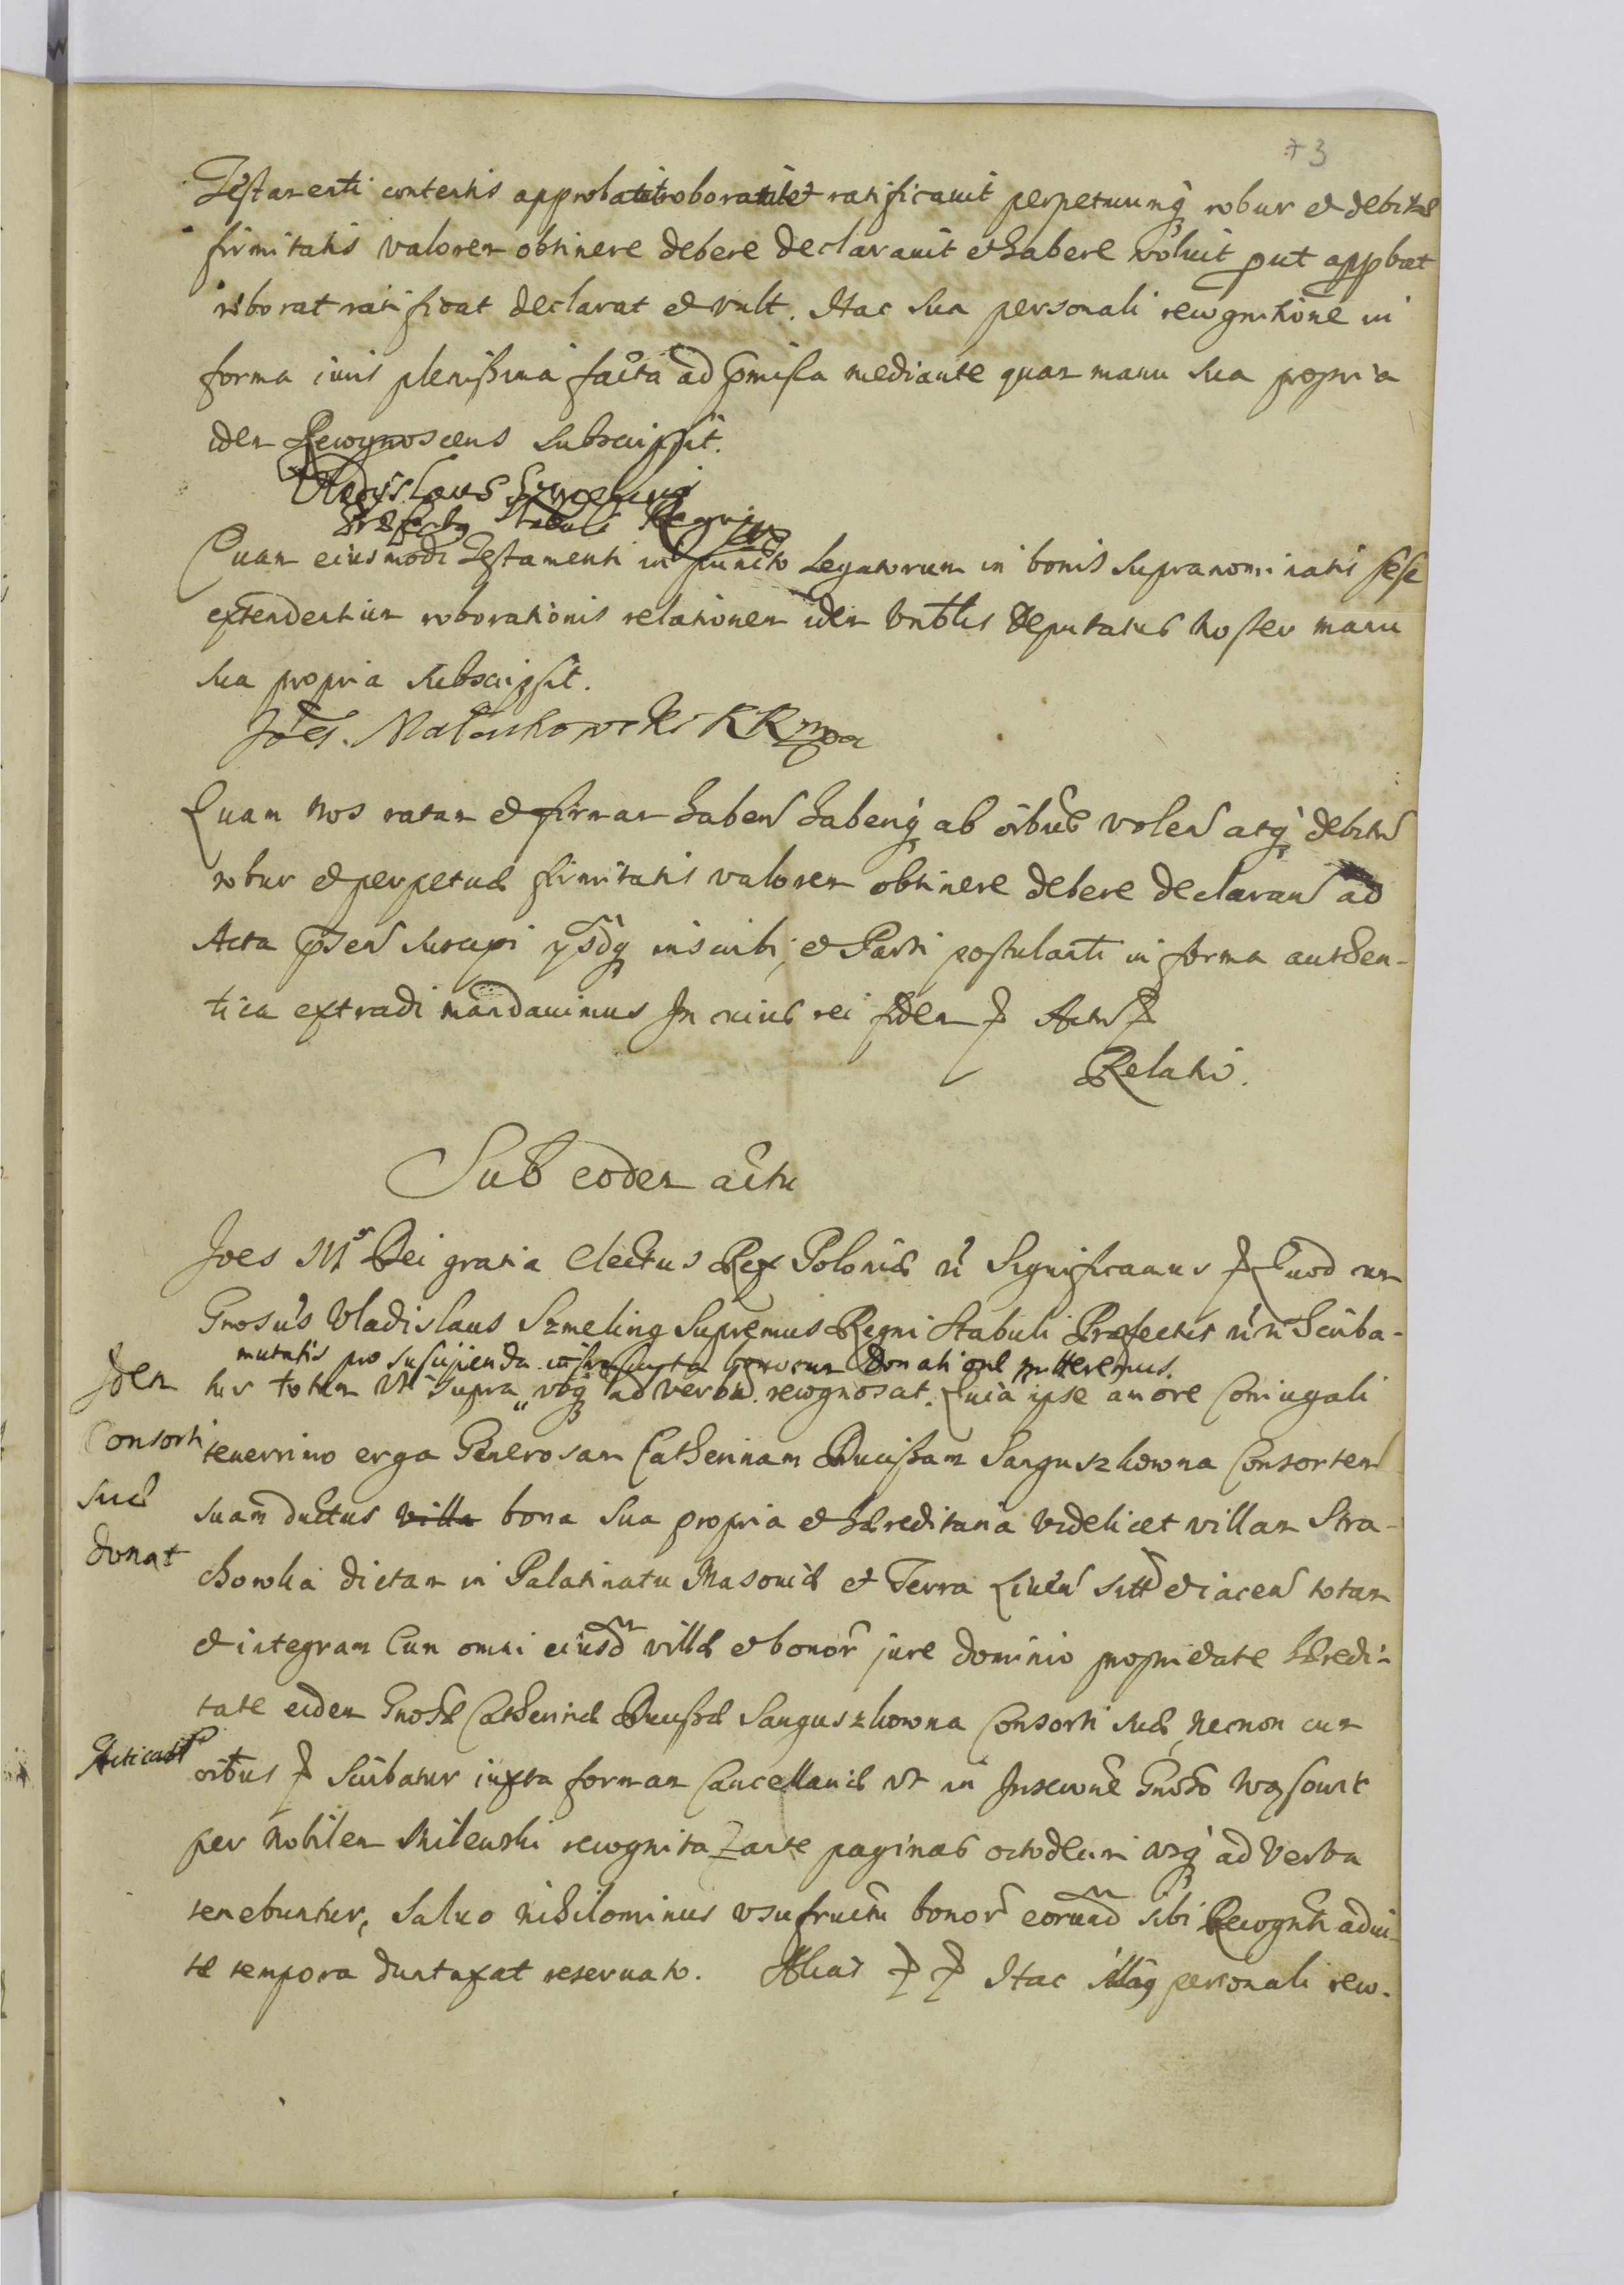 73
Testamenti contentis approbavit roboravit et ratificavit perpetuumq robur et debitæ
firmitatis valorem obtinere debere declaravit et habere voluit put appbat
roborat ratificat declarat et vult. Hac sua personali recognitione in
forma iuris plenissima facta ad pmissa mediante quam manu sua propria
idem Recognoscens subscripsit.
Vladislaus Szmeling
Præfectus Stabuli Regni mp
Quam eiusmodi Testamenti in puncto Legatorum in bonis supranominatis sese
extendentium roborationis relationem idem Vrbilis Deputatus Noster manu
sua propria subscripsit.
Joes. Małachowski KK mpa
Quam Nos ratam et firmam haben haberiq ab oibus volen atq debitu
robur et perpetuæ firmitatis valorem obtinere debere declaran ad
Acta psen suscipi ijsdq inscribi, et Parti postulanti in forma authen-
tica extradi mandavimus In cuius rei fidem Actu
Relatio.
Sub eodem actu
Joes IIIs Dei gratia electus Rex Poloniæ Significamus Quod cum
Gnosus Vladislaus Szmeling Supremus Regni Stabuli Præfectus Scriba-
mutatis pro suscipienda infrascripta bonorum Donatione mitteremus.
tur totum Vt supra vsq ad verba. recognoscat. Quia ipse amore Coniugali
Idem
Consorti
suæ
donat
tenerrimo erga Generosam Catherinam Ducissam Sanguszkowna Consortem
suam ductus villa bona sua propria et hæreditaria videlicet villam Stra-
chowka dictam in Palatinatu Masoviæ et Terra Liven sitt et iacen totam
et integram Cum omni eiusd villæ et bonor jure dominio proprietate hæredi-
tate eidem Gnosæ Catherinæ Ducissæ Sanguszkowna Consorti suæ, necnon cum
oibus Scribatur iuxta formam Cancellariæ vt in Inscrione Gnoso Wąsowic
per Nobilem Milewski recognita ante paginas octodecim vsq ad verba
tenebuntur, salvo nihilominus vsufructu bonor eorund sibi Recognti ad vi-
tæ tempora duntaxat reservato. Alias Hac personali reco-